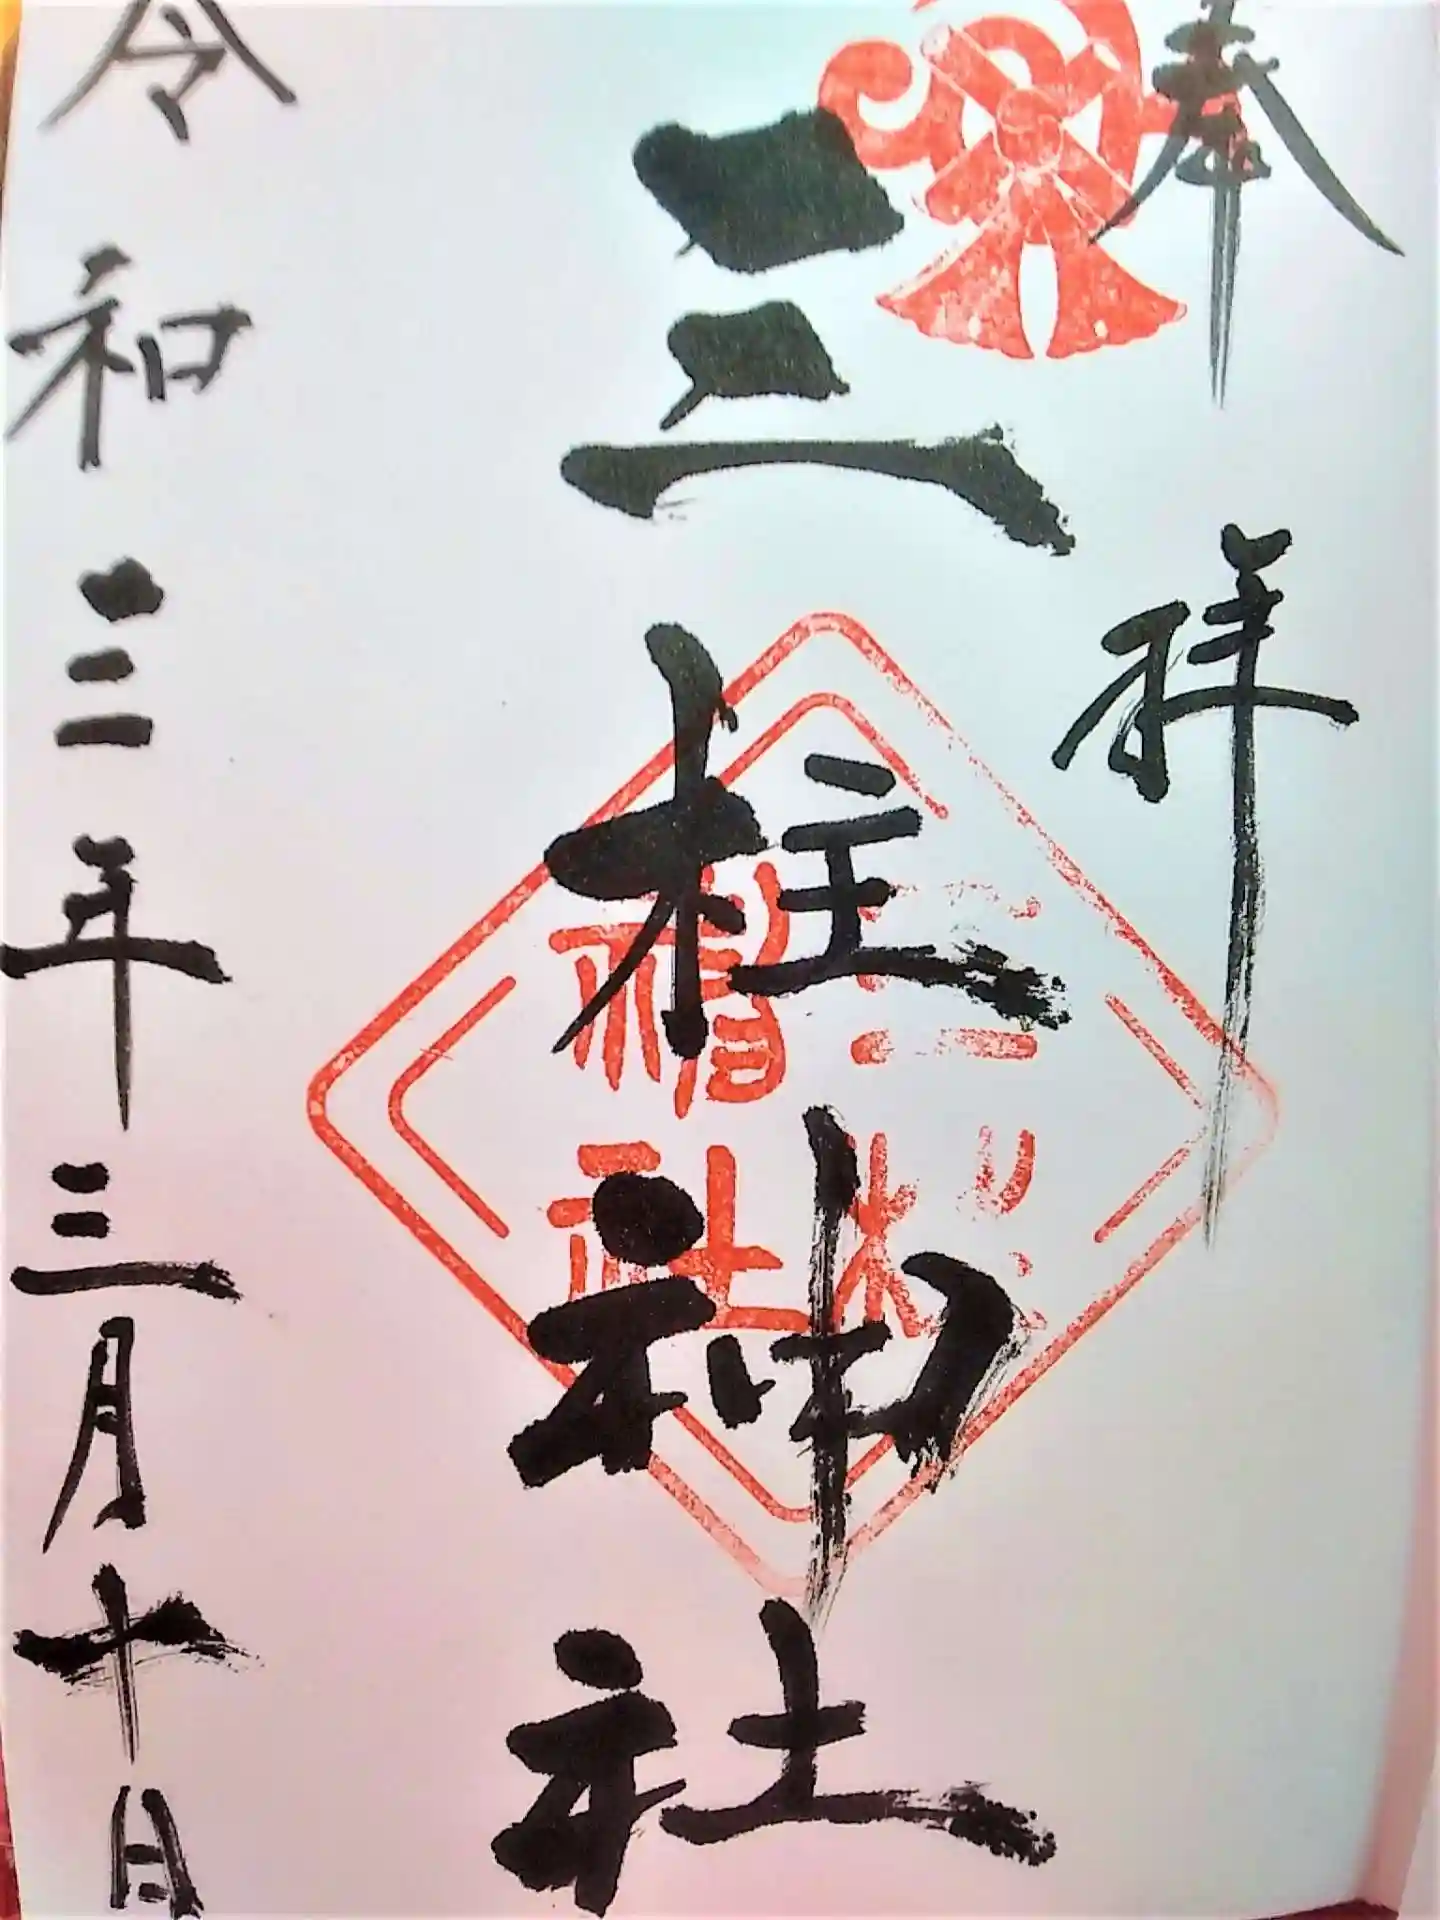 奉拝
三柱神社
三柱神社
令和三年三月十日